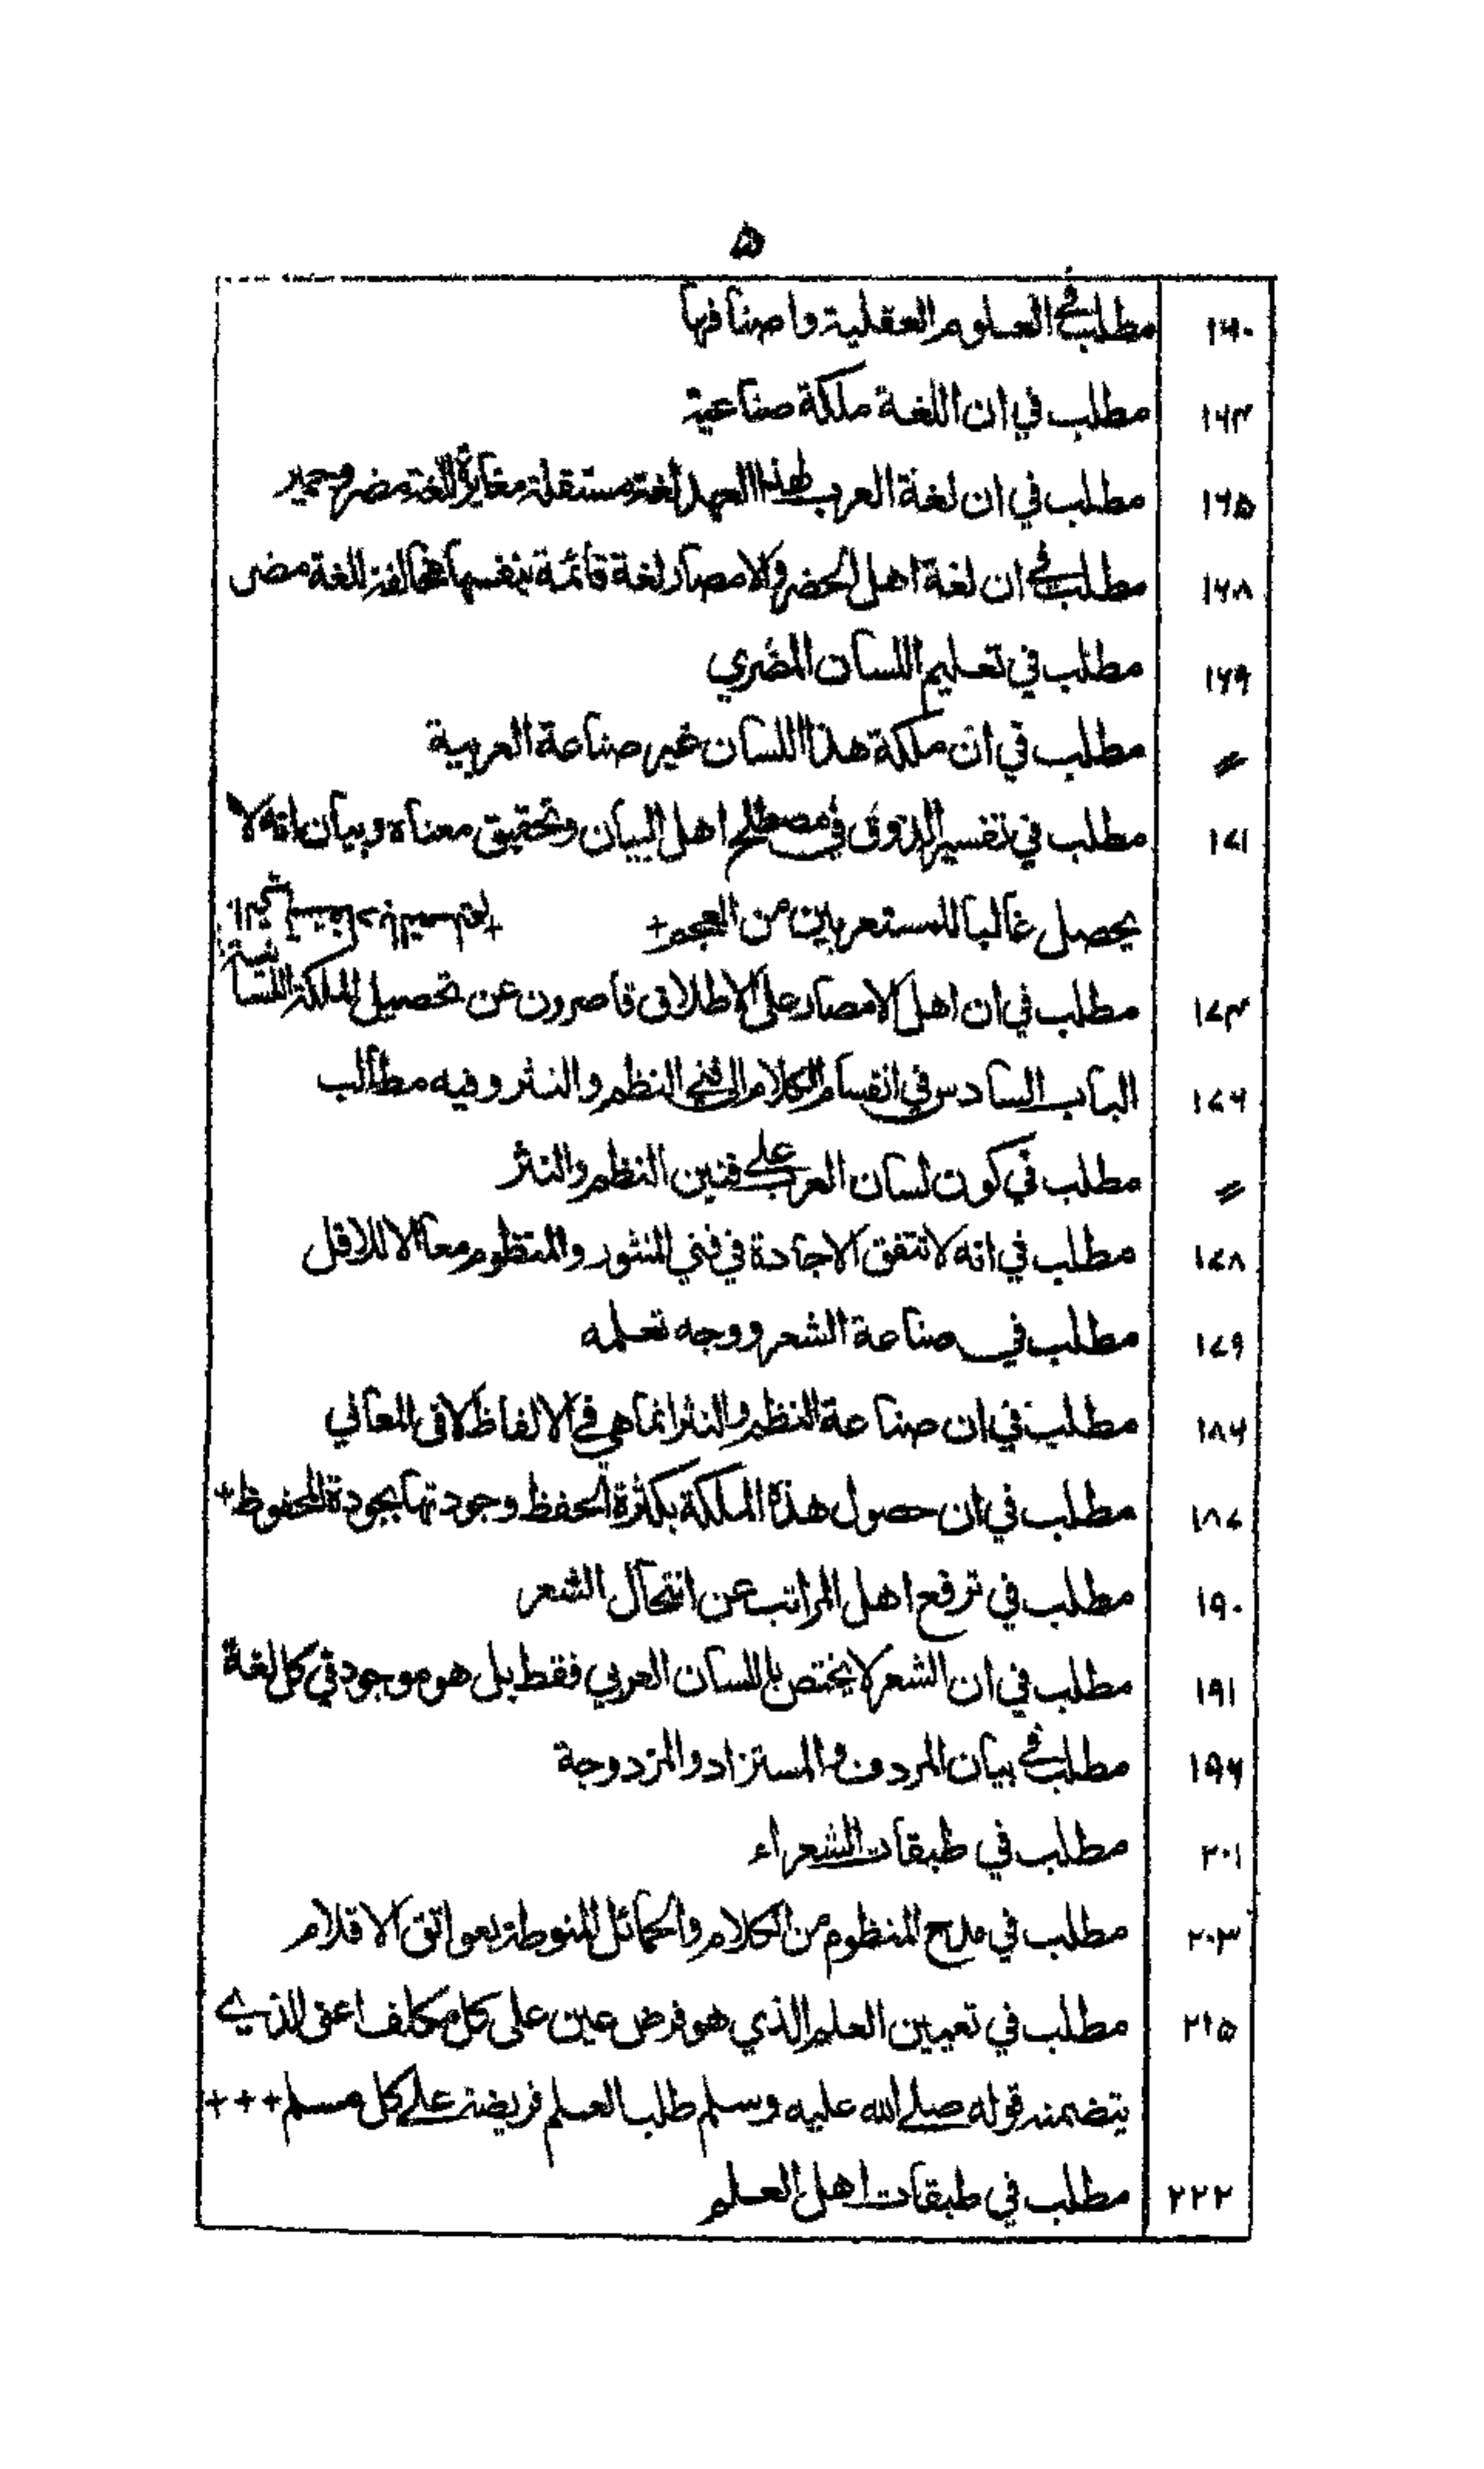 ۵
۱۶۰ مطلب في العلوم العقلية واصنافها
۱۶۳ مطلب في ان اللغة ملكة صناعية
۱۶۵ مطلب في ان لغة العرب لهذا العهد لغة مستقلة مغايرة للغة مضر وحمير
۱۶۸ مطلب في ان لغة اهل الحضر والامصار لغة قائمة بنفسها مخالفة للغة مضر
۱۶۹ مطلب في تعليم اللسان المضري
〃 مطلب في ان ملكة هذا اللسان غير صناعة العربية
۱۷۱ مطلب في تفسير الذوق في مصطلح اهل البيان وتحقيق معناه وبيان انه لا
يحصل غالبا للمستعربين من العجم +
۱۷۳ مطلب في ان اهل الامصار على الاطلاق قاصرون عن تحصيل الملكة اللسانية
۱۷۶ الباب السادس في انقسام الكلام الى فني النظم والنثر وفيه مطالب
〃 مطلب في كون لسان العرب على فنين النظم والنثر
۱۷۸ مطلب في انه لا تتفق الاجادة في فني المنثور والمنظوم معا الا للاقل
۱۷۹ مطلب في صناعة الشعر ووجه تعلمه
۱۸۶ مطلب في ان صناعة النظم والنثر انما هي في الالفاظ لا في المعاني
۱۸۷ مطلب في ان حصول هذه الملكة بكثرة الحفظ وجودتها بجودة المحفوظ +
۱۹۰ مطلب في ترفع اهل المراتب عن انتحال الشعر
۱۹۱ مطلب في ان الشعر لا يختص باللسان العربي فقط بل هو موجود في كل لغة
۱۹۶ مطلب في بيان المردف والمستزاد والمزدوجة
۲۰۱ مطلب في طبقات الشعراء
۲۰۳ مطلب في مدح المنظوم من الكلام والحمائل المنوطة بعواتق الاقلام
۲۱۵ مطلب في تعيين العلم الذي هو فرض عين على كل مكلف اعني الذي
يتضمنه قوله صلى الله عليه وسلم طلب العلم فريضة على كل مسلم +++
۲۲۲ مطلب في طبقات اهل العلم